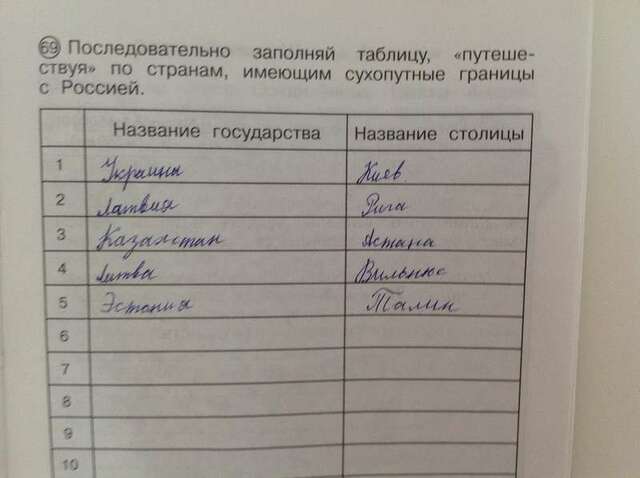 69 Последовательно заполняй таблицу, «путеше-
ствуя» по странам, имеющим сухопутные границы
с Россией.
Название государства Название столицы
1 Украина Киев
2 Латвия Рига
3 Казахстан Астана
4 Литва Вильнюс
5 Эстония Талин
6
7
8
9
10